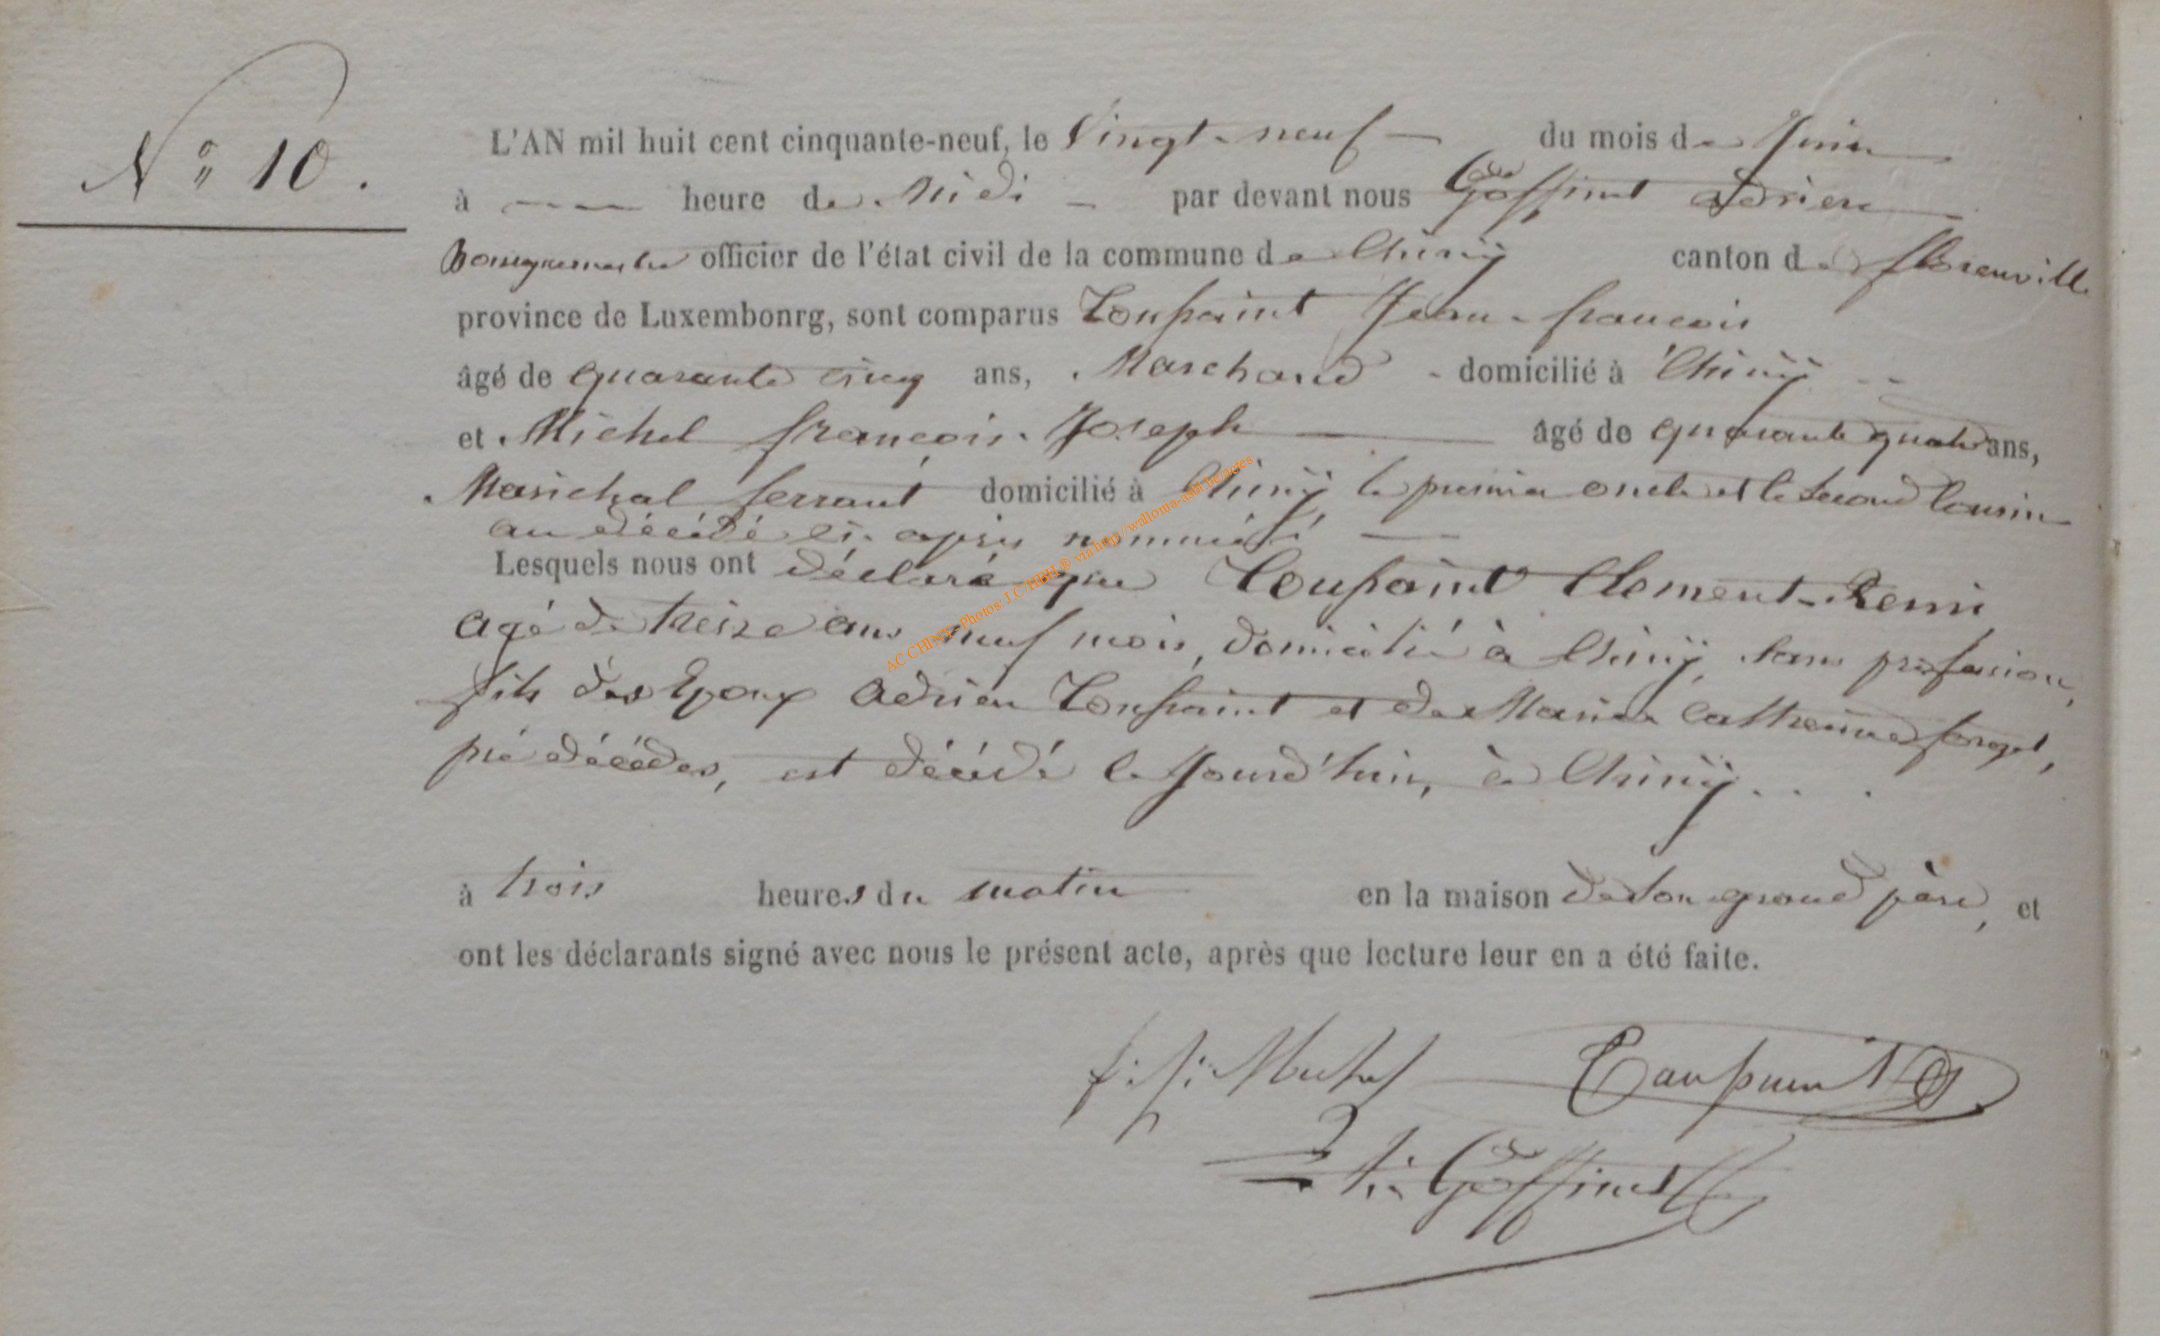 N° 10.
L'AN mil huit cent cinquante-neuf, le Vingt-neuf du mois de Juin
à heure de Midi par devant nous Goffinet Adrien
Bourgmestre officier de l'état civil de la commune de Chiny canton de florenville
province de Luxembonrg, sont comparus Toussaint Jean-francois
âgé de quarante cinq ans, Marchand domicilié à Chiny
et Michel francois-Joseph âgé de quarante quatre ans,
Marichal ferrant domicilié à Chiny, le premier oncle et le second Cousin
au décédé ci-après nommé
Lesquels nous ont déclaré que Toussaint Clement-Remi
agé de treize ans neuf mois, domicilié à Chiny, sans profession,
fils des Epoux Adrien Toussaint et de Marie Catherine forget,
prédécédés, est décédé le Jourd'hui, à Chiny...
à trois heures du matin en la maison de son grand père, et
ont les déclarants signé avec nous le présent acte, après que lecture leur en a été faite.
f. j. Michel Toussaint
Goffinet
AC CHINY - Photos J.C. via http://walloma-asbl.be/actes